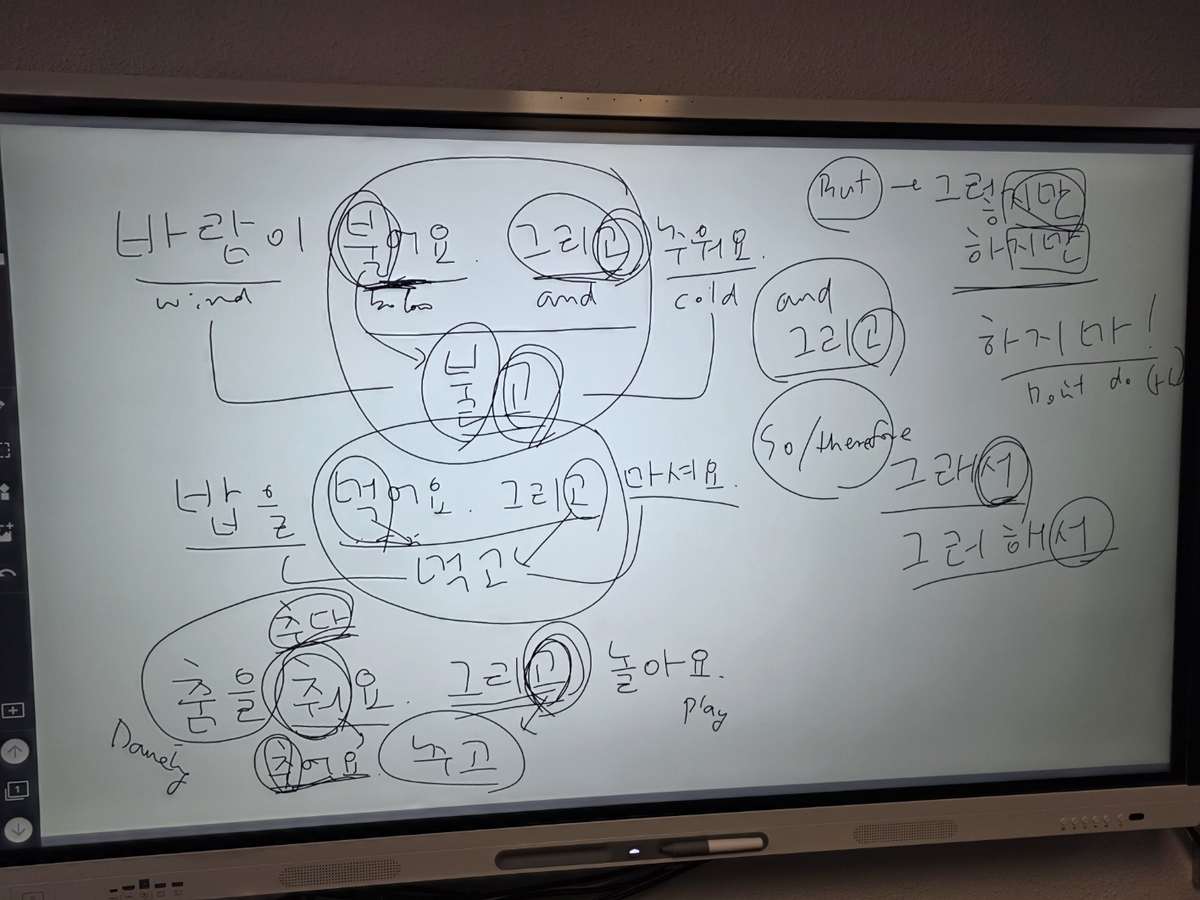 바람이 불어요. 그리고 추워요.
wind and cold
불고
밥을 먹어요. 그리고 마셔요.
먹고
추다
춤을 춰요. 그리고 놀아요.
play
추어요 추고
But → 그렇지만
하지만
and
그리고
하지마!
Don't do
So/therefore
그래서
그러해서